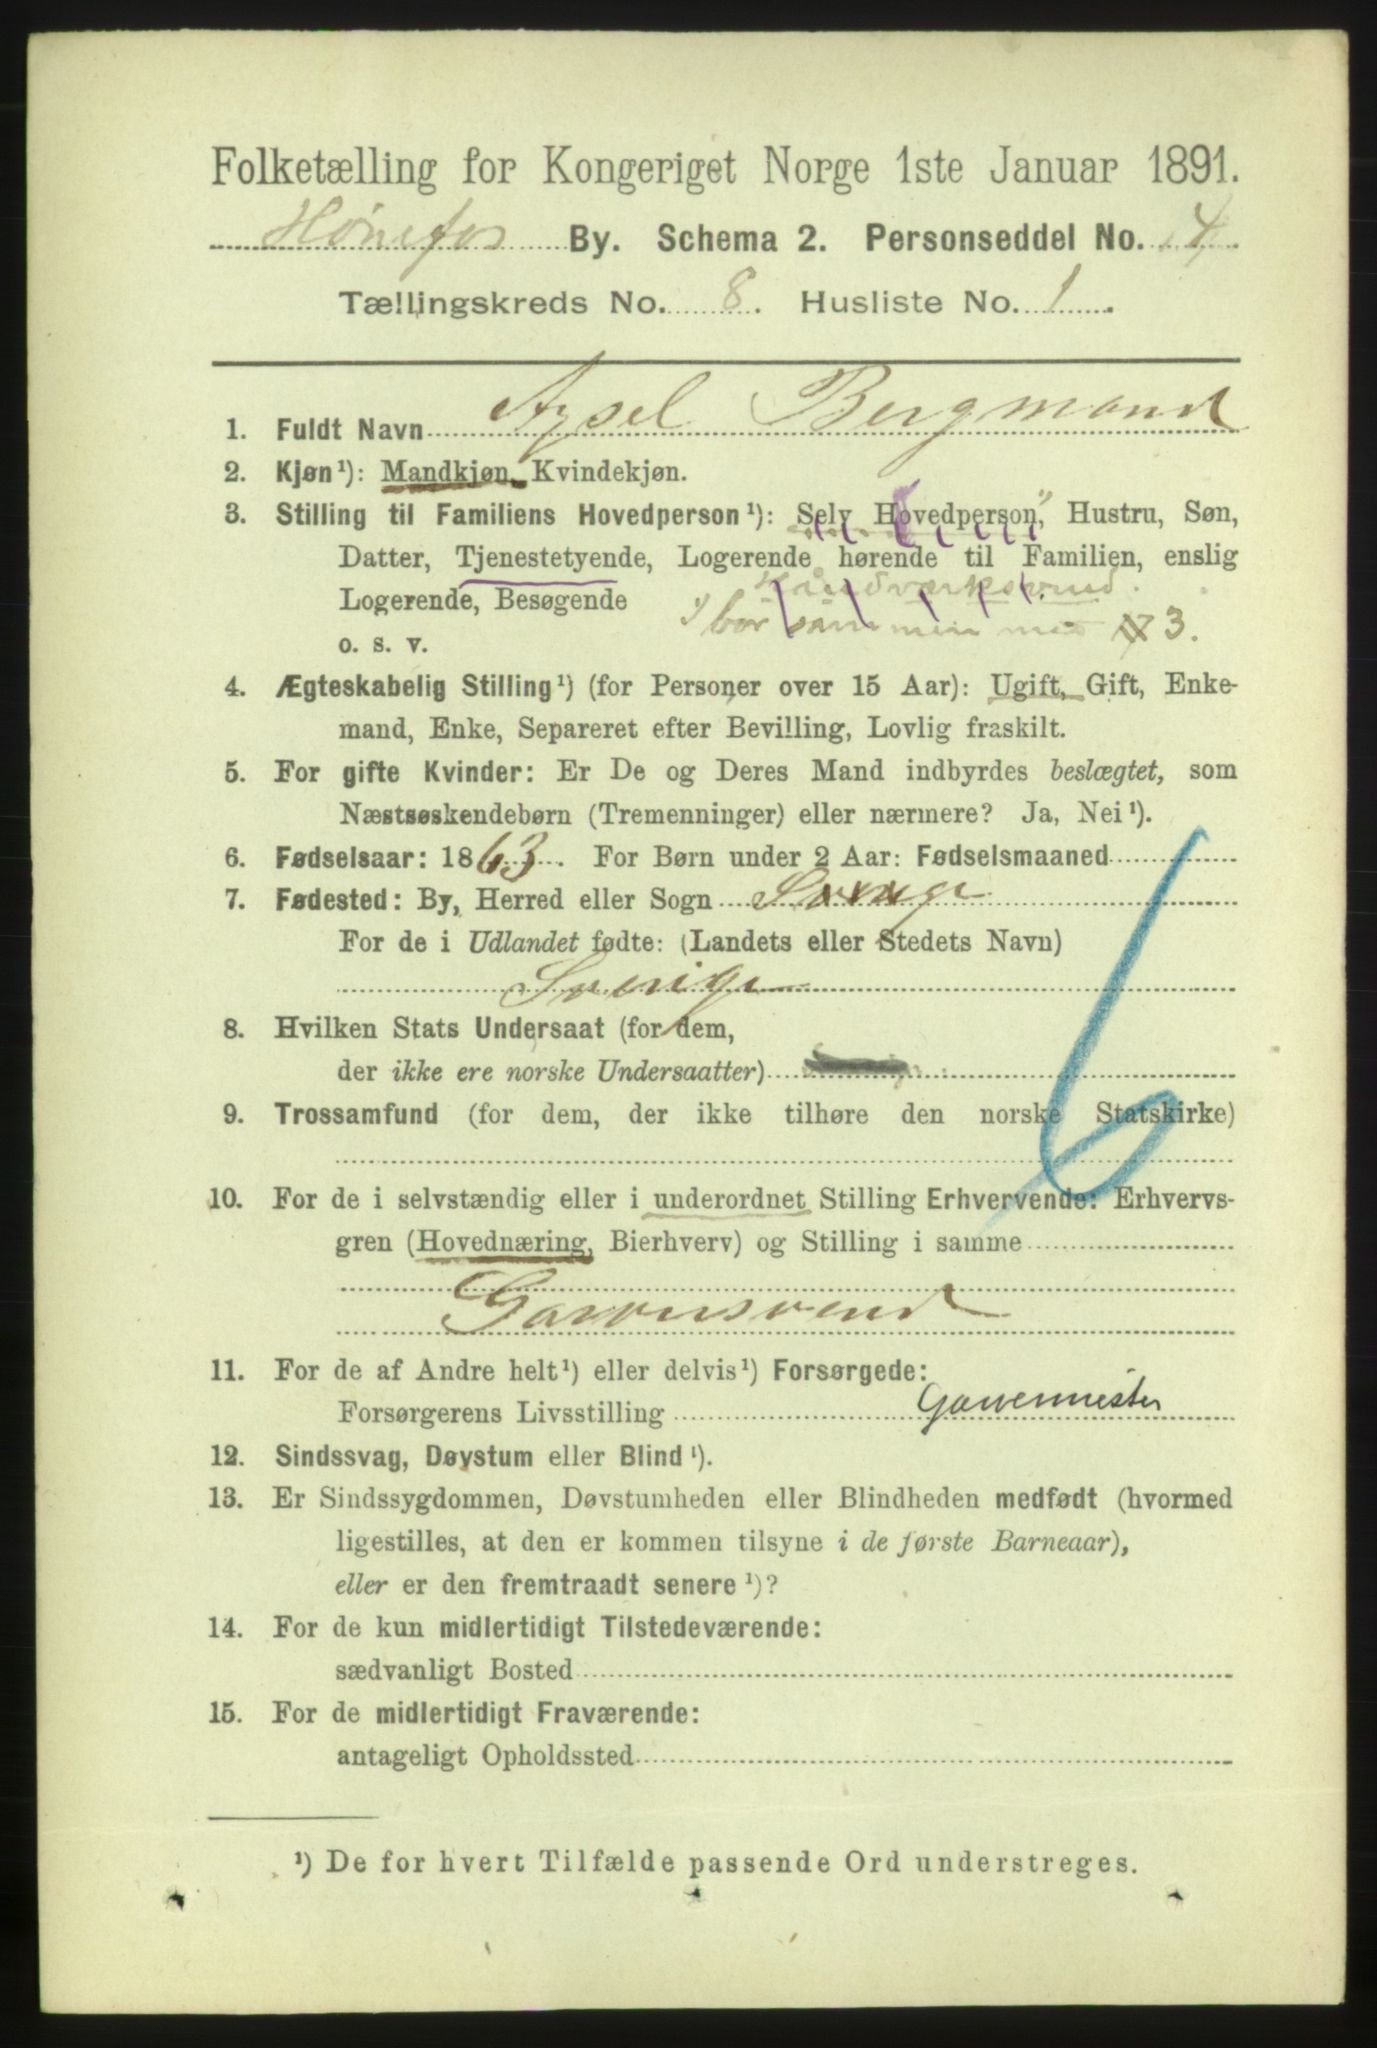 Folketælling for Kongeriget Norge 1ste Januar 1891.
Hønefos By. Schema 2. Personseddel No. 4
Tællingskreds No. 8. Husliste No. 1.
1. Fuldt Navn Axsel Bergmand
2. Kjøn¹): Mandkjøn, Kvindekjøn.
3. Stilling til Familiens Hovedperson¹): Selv Hovedperson, Hustru, Søn,
Datter, Tjenestetyende, Logerende hørende til Familien, enslig
Haandværkssvend.
Logerende, Besøgende
bor sammen med N 3.
o. s. v.
4. Ægteskabelig Stilling¹) (for Personer over 15 Aar): Ugift, Gift, Enke-
mand, Enke, Separeret efter Bevilling, Lovlig fraskilt.
5. For gifte Kvinder: Er De og Deres Mand indbyrdes beslægtet, som
Næstsøskendebørn (Tremenninger) eller nærmere? Ja, Nei¹).
6. Fødselsaar: 1863. For Børn under 2 Aar: Fødselsmaaned
7. Fødested: By, Herred eller Sogn
For de i Udlandet fødte: (Landets eller Stedets Navn)
Sverige
8. Hvilken Stats Undersaat (for dem,
der ikke ere norske Undersaatter)
9. Trossamfund (for dem, der ikke tilhøre den norske Statskirke)
10. For de i selvstændig eller i underordnet Stilling Erhvervende: Erhvervs-
gren (Hovednæring, Bierhverv) og Stilling i samme
Garversvend
11. For de af Andre helt¹) eller delvis¹) Forsørgede:
Forsørgerens Livsstilling Garvermester
12. Sindssvag, Døvstum eller Blind¹).
13. Er Sindssygdommen, Døvstumheden eller Blindheden medfødt (hvormed
ligestilles, at den er kommen tilsyne i de første Barneaar),
eller er den fremtraadt senere¹)?
14. For de kun midlertidigt Tilstedeværende:
sædvanligt Bosted
15. For de midlertidigt Fraværende:
antageligt Opholdssted
¹) De for hvert Tilfælde passende Ord understreges.